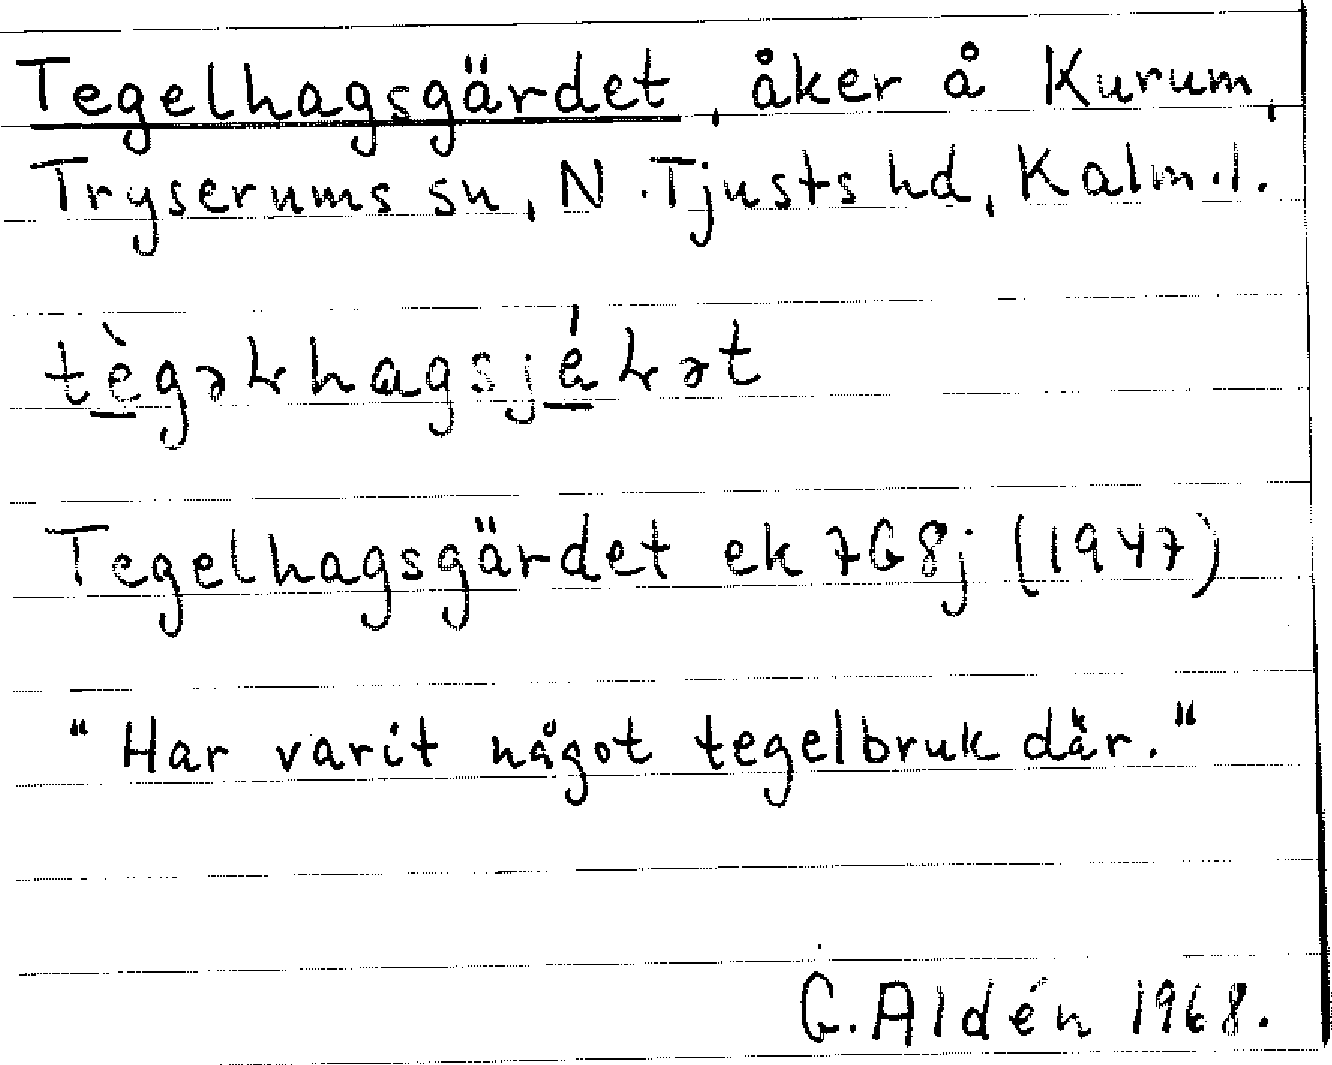 Tegelhagsgärdet, åker å Kurum,
Tryserums sn, N. Tjusts hd, Kalm.l.
Tegelhagsgärdet ek 7G8j (1947)
"Har varit något tegelbruk där."
G. Aldén 1968.